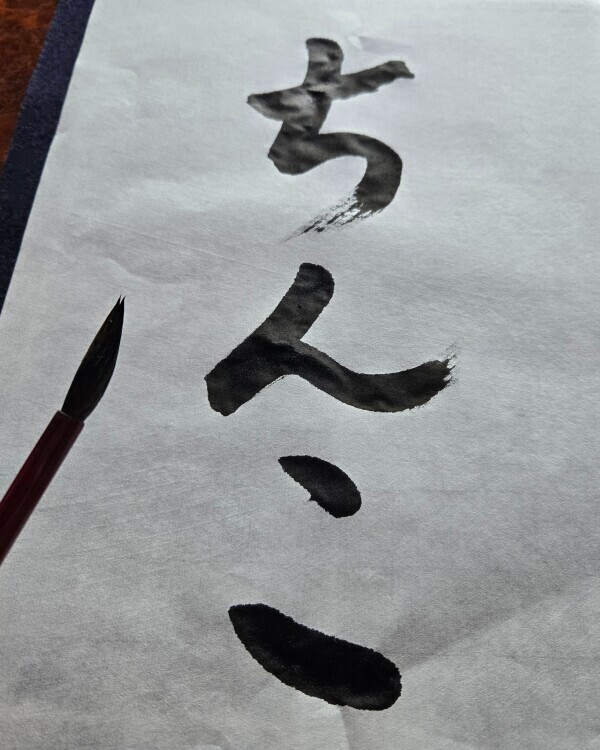 ちんこ